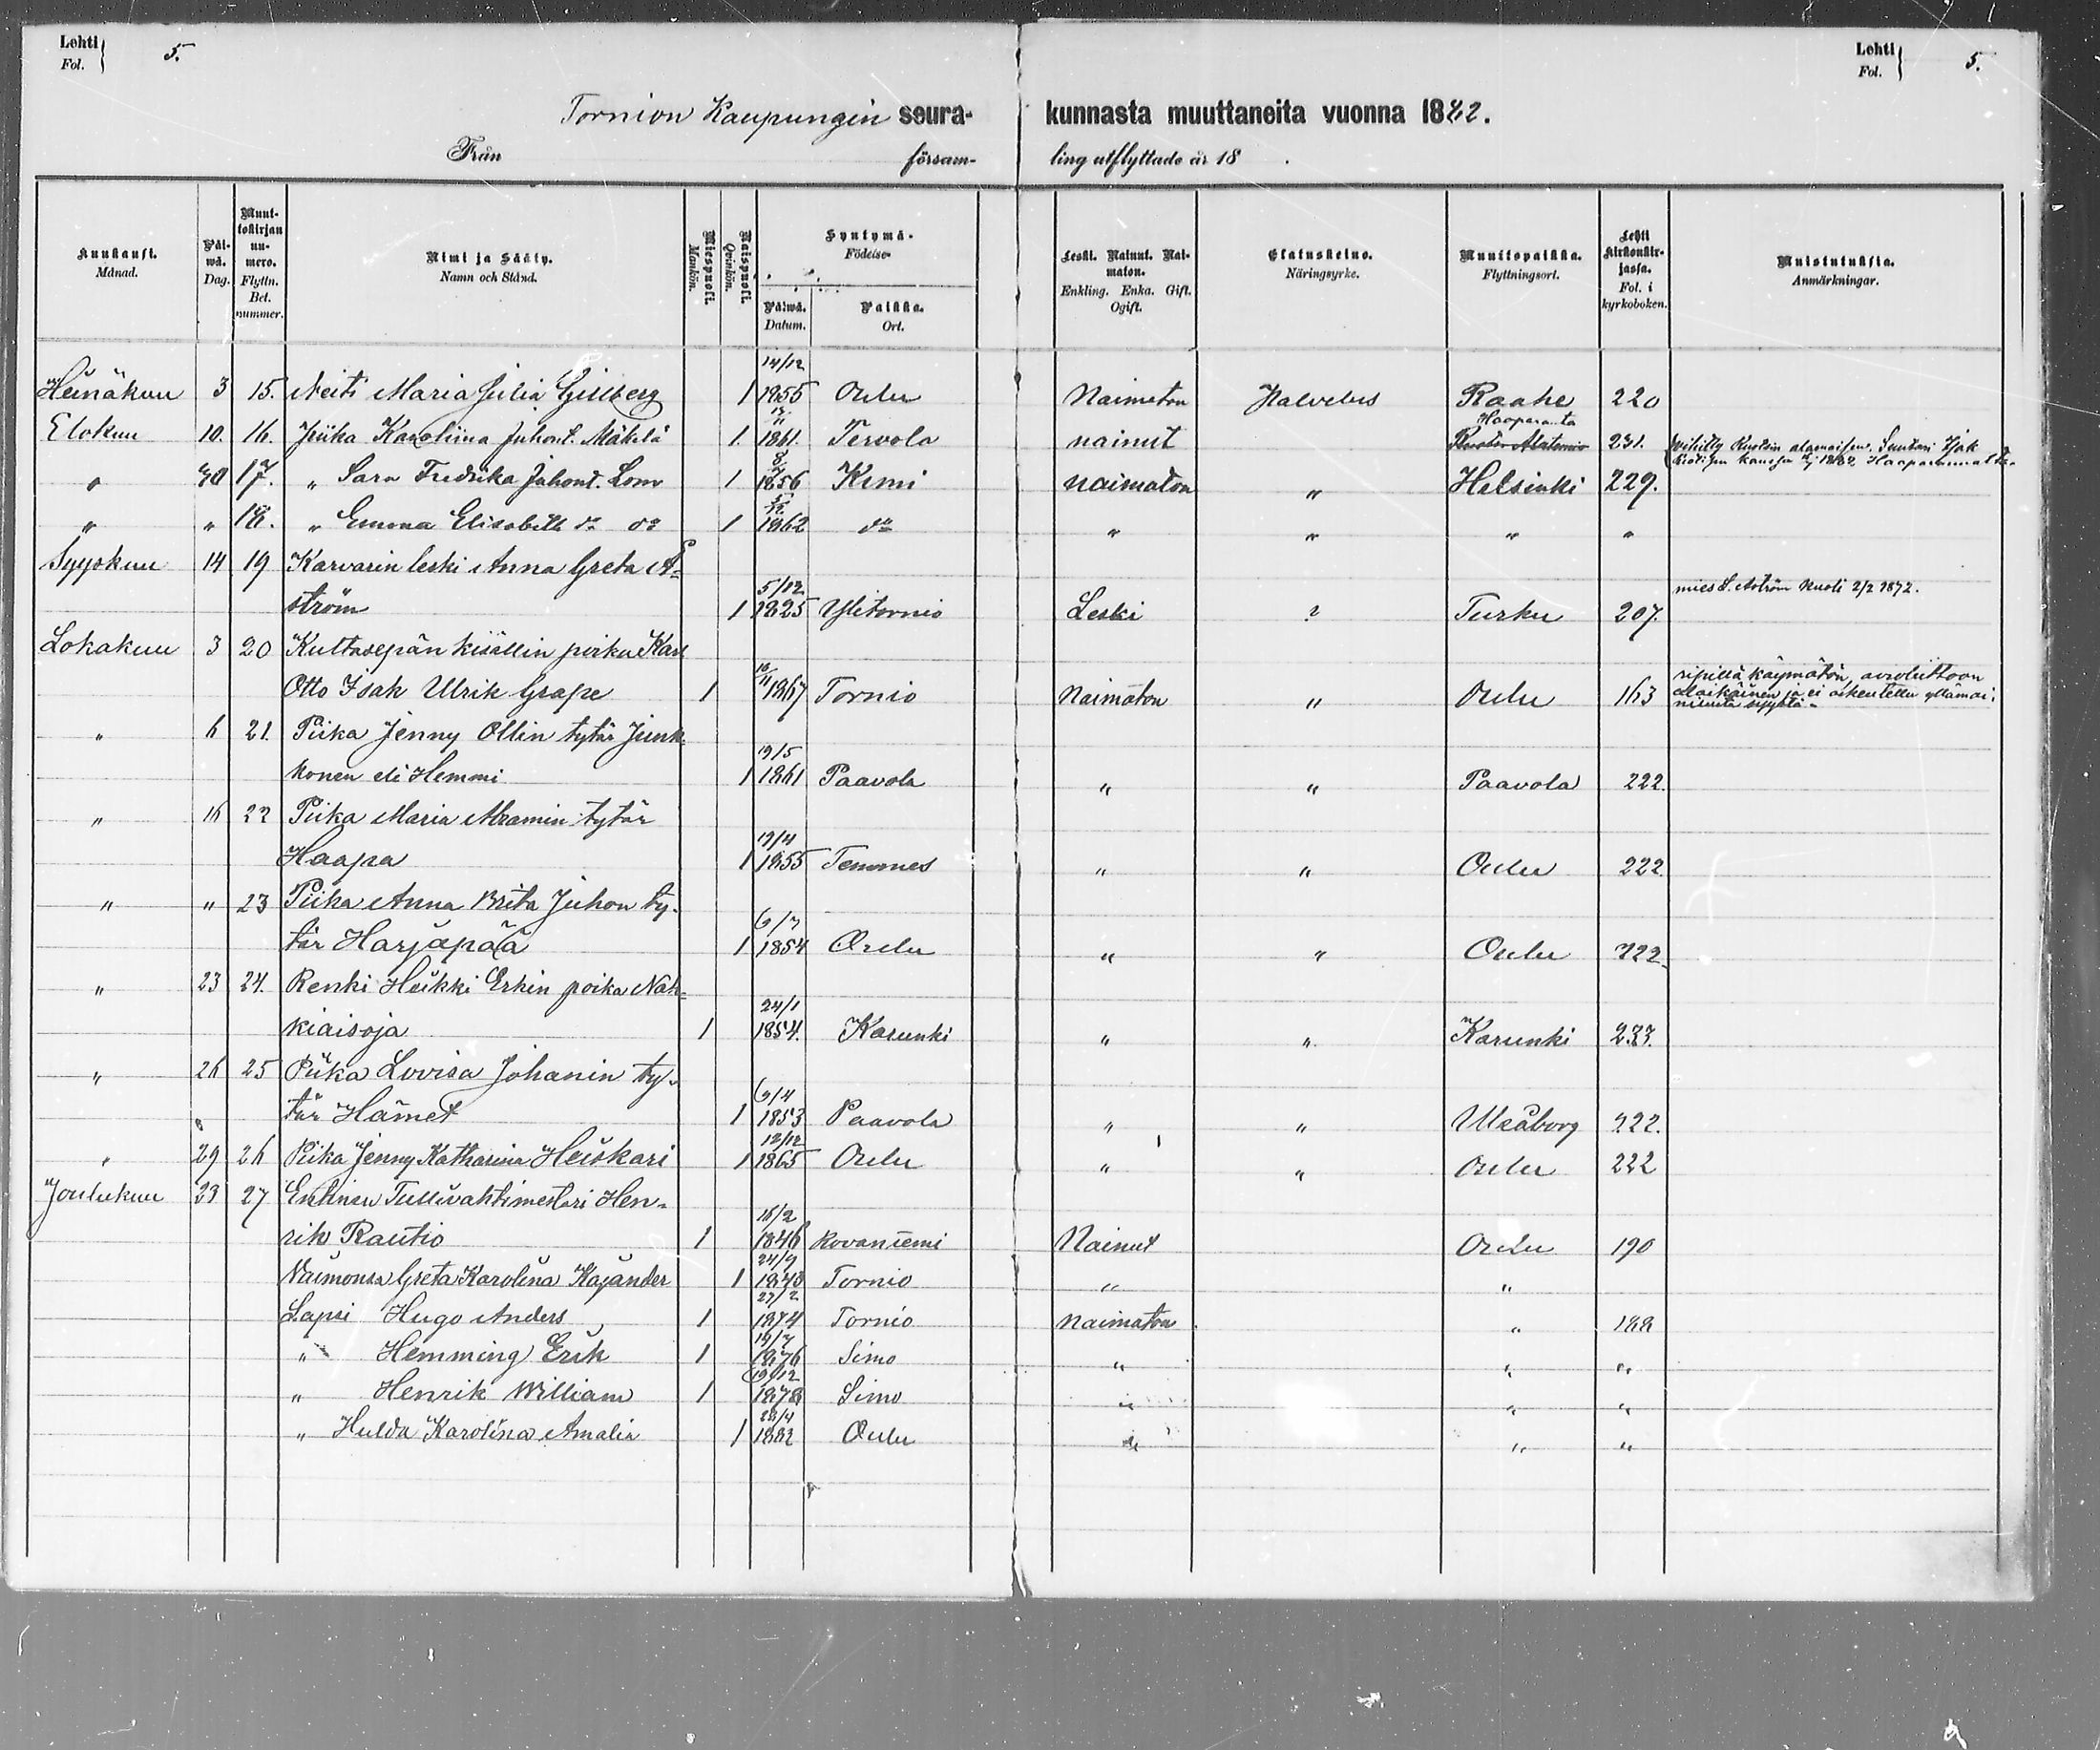 Lehti 5. Lehti 5.
Fol. Fol.
Tornion Kaupungin seura- kunnasta muuttaneita vuonna 1882.
Från försam- ling utflyttade år 18 .
Kuukausi. Päi-wä. Muut-tokirjan nu-mero. Nimi ja Sääty. Miespuoli. Naispuoli. Syntymä- Leski. Nainut. Nai-maton. Elatuskeino. Muuttopaikka. Lehti kirkonkir-jassa. Muistutuksia.
Månad. Dag. Flyttn. Bet. nummer. Namn och Stånd. Mankön. Qvinkön. Födelse- Enkling. Enka. Gift. Ogift. Näringsyrke. Flyttningsort. Fol. i kyrkoboken. Anmärkningar.
Päiwä. Paikka.
Datum. Ort.
14/12
Heinäkuu 3 15. Neiti Maria Julia Gillberg 1 1855 Oulu Naimaton Palvelus Raahe 220
Haaparanta
Elokuu 10. 16. Piika Karoliina Juhont. Mäkelä 1. 1861. Tervola nainut 231.
" 30 17. " Sara Fredrika Juhont. Lom 1 1856 Kemi naimaton " Helsinki 229.
" " 18. " Emma Elisabeth do do 1 1862 do " " " "
Syyskuu 14 19 Karvarin leski Anna Greta Å=
5/12 mies S. Åström kuoli 2/2 1872.
ström 1 1825 Ylitornio Leski ? Turku 207.
Lokakuu 3 20 Kultasepän kisällin poika Karl
ripillä käymätön, avioliittoon
Otto Isak Ulrik Grape 1 1867 Tornio Naimaton " Oulu 163 alaikäinen ja ei oikeutettu yllämai-
nitusta syystä.
" 6 21. Piika Jenny Ollin tytär Junk-
19/5
konen eli Hemmi 1 1861 Paavola " " Paavola 222.
" 16 22 Piika Maria Abramin tytär
19/4
Haapa 1 1855 Temmes " " Oulu 222
" " 23 Piika Anna Brita Juhon ty-
6/7
tär Harjapää 1 1854 Oulu " " Oulu 222.
" 23 24. Renki Heikki Erkin poika Nah=
24/1
kiaisoja 1 1854. Karunki " " Karunki 233.
" 26 25 Piika Lovisa Johanin ty-
6/4
tär Hämet 1 1853 Paavola " " Uleåborg 222.
12/12
" 29 26 Piika Jenny Katharina Heiskari 1 1865 Oulu " " Oulu 222
Joulukuu 23 27 Entinen Tullivahtimestari Hen-
15/2
rik Rautio 1 1846 Rovaniemi Nainut Oulu 190
24/9
Vaimonsa Greta Karolina Kajander 1 1843 Tornio " "
27/2
Lapsi Hugo Anders 1 1874 Tornio Naimaton " 188
19/7
" Hemming Erik 1 1876 Simo " " "
19/12
" Henrik William 1 1878 Simo " " "
28/4
" Hulda Karolina Amalia 1 1882 Oulu " " "